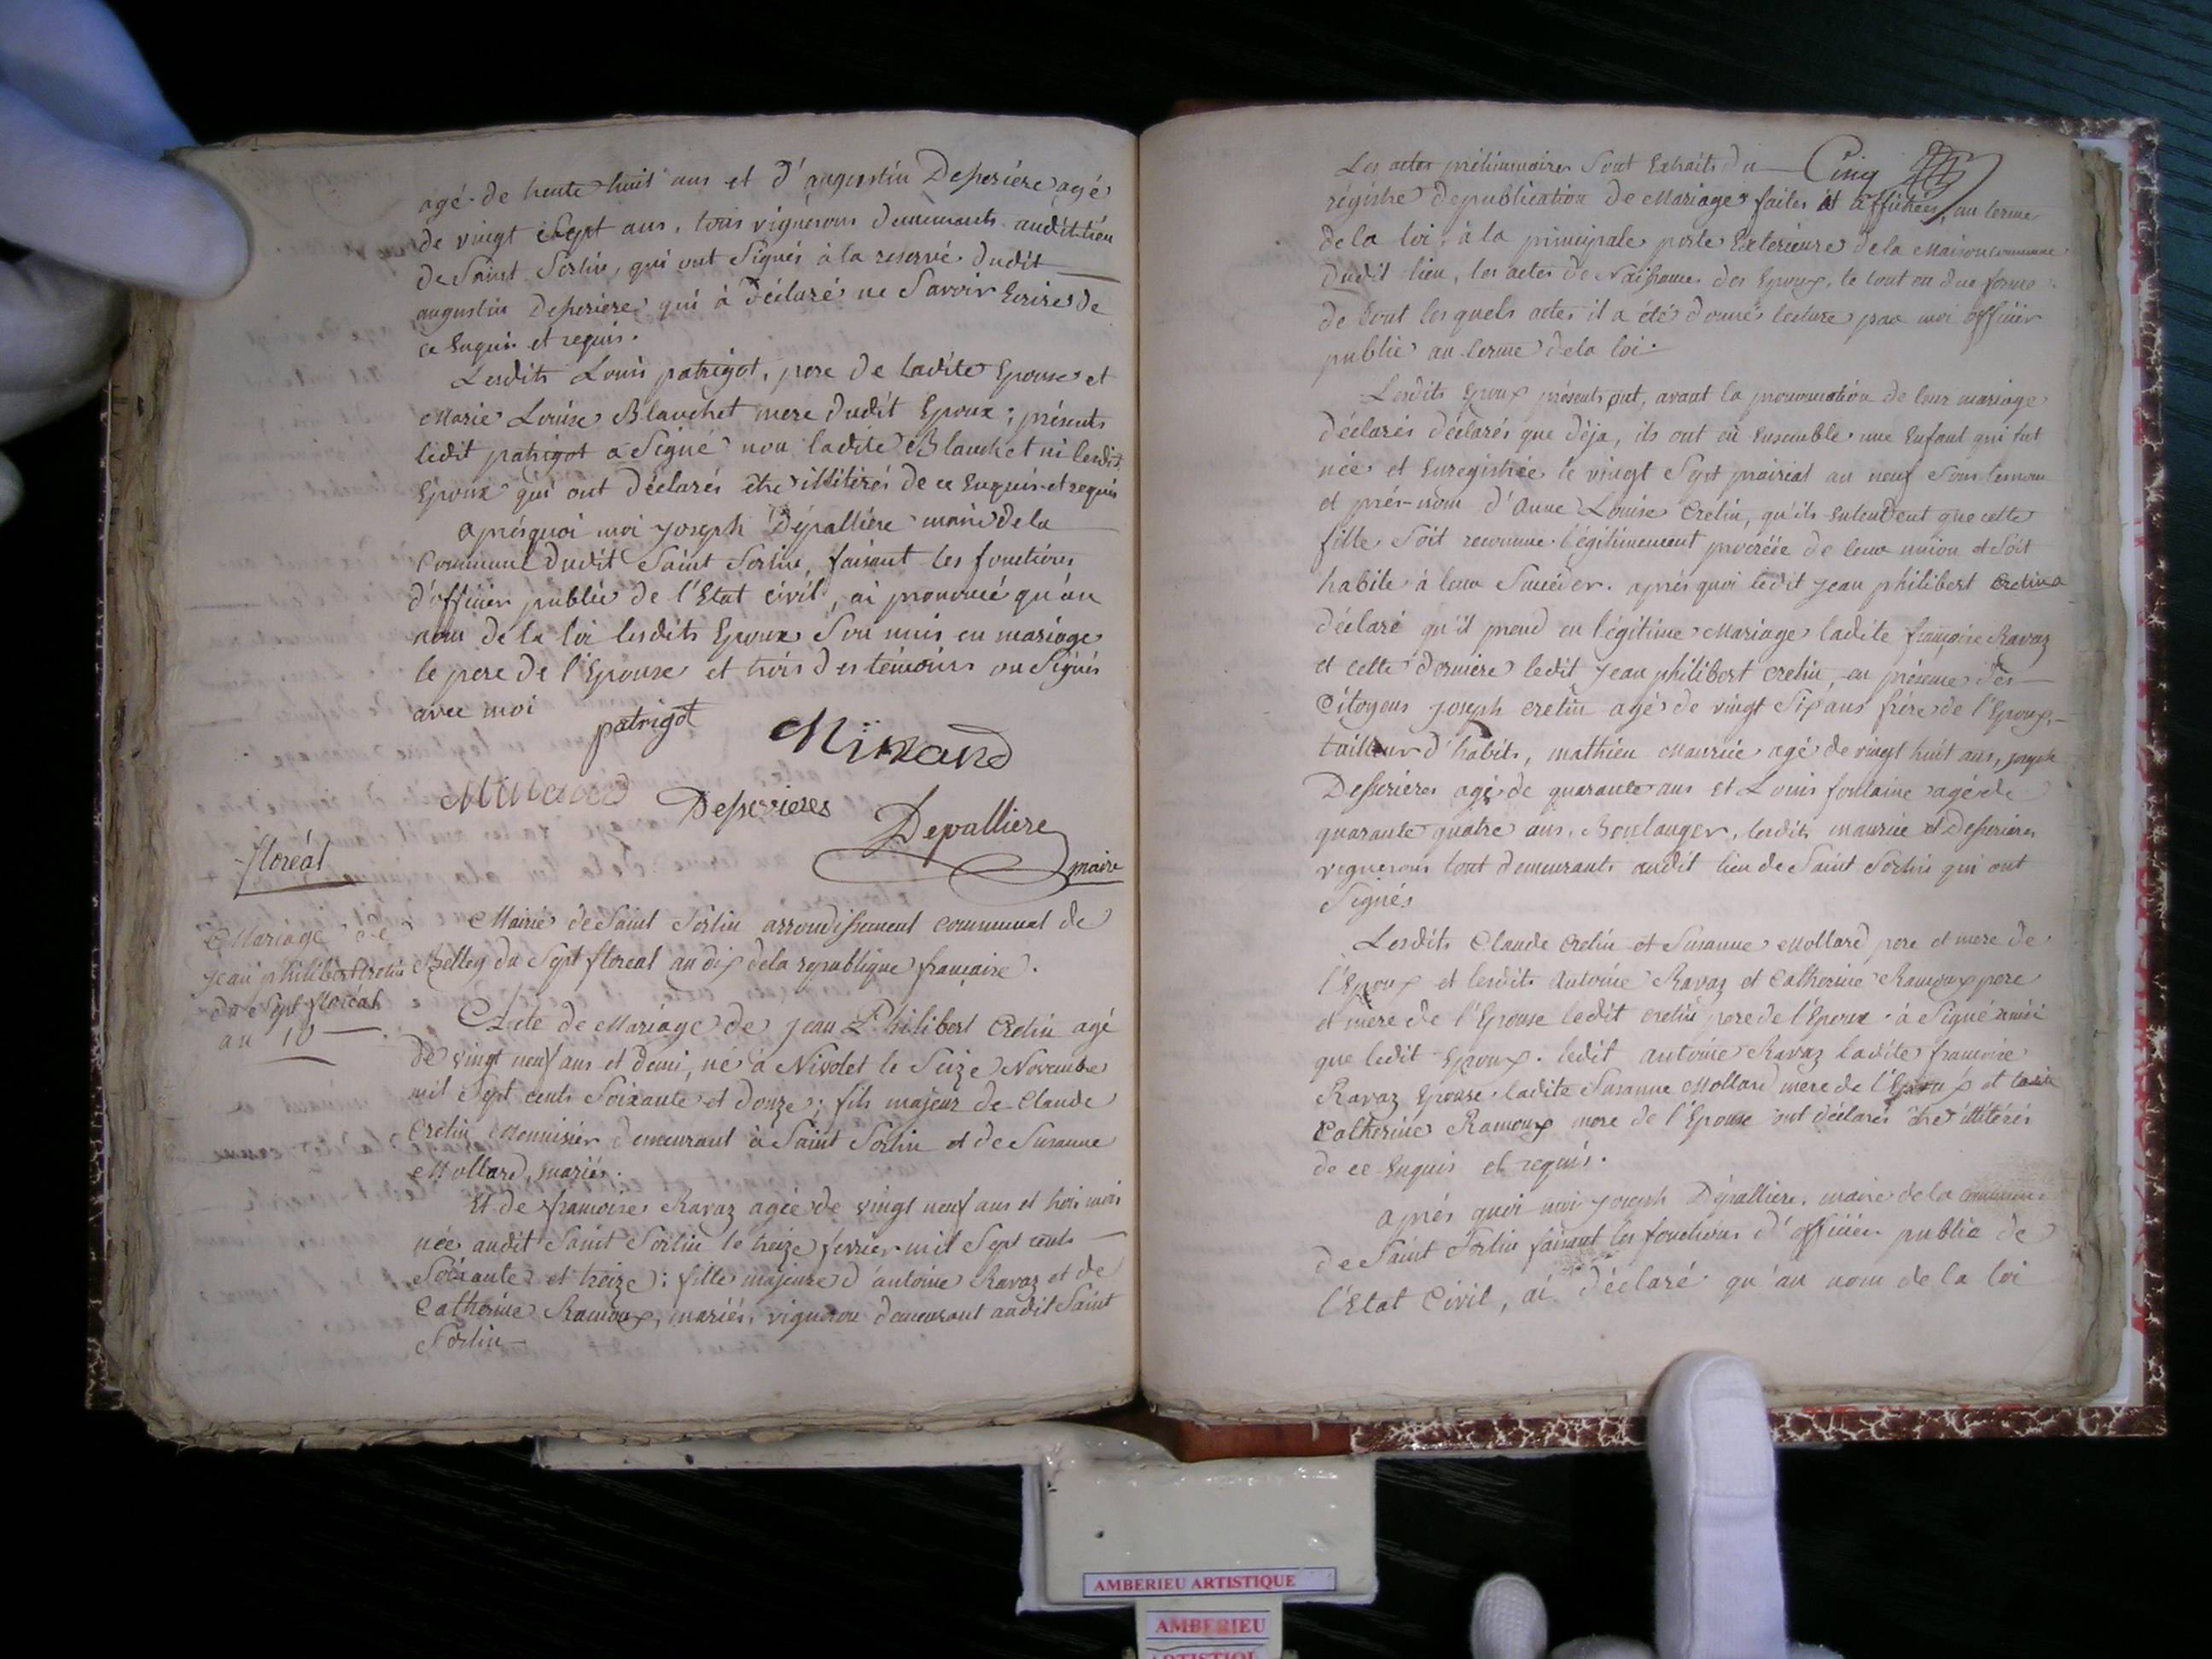 agé de trente huit ans et d'augustin Desperiere agé
de vingt et sept ans, tous vignerons demeurants audit lieu
de Saint Sorlin, qui ont Signés à la reserve dudit
augustin Desperiere qui à déclaré ne Savoir Ecrire de
ce Enquis et requis.
Lesdits Louis patrigot, pere de ladite Epouse et
Marie Louise Blanchet mere dudit Epoux ; présents
ledit patrigot a Signé non ladite Blanchet ni lesdits
Epoux qui ont déclarés être illitérés de ce Enquis et requis
aprésquoi moi joseph Dépalliere maire de la
Commune dudit Saint Sorlin, faisant les fonctions
d'officier public de l'Etat civil, ai prononcé qu'au
nom de la loi lesdits Epoux son unis en mariage
le pere de l'Epouse et trois des témoins on Signés
avec moi
patrigot
Minand
Desperieres
Depalliere
maire
floréal
Mariage de
jean philibert Cretin
du Sept floréal
an 10
Mairie de Saint Sorlin arrondissement communal de
Belley du Sept floréal an dix de la republique française.
Acte de Mariage de jean Philibert Cretin agé
de vingt neuf ans et demi, né à Nivolet le Seize Novembre
mil Sept cents Soixante et douze ; fils majeur de Claude
Cretin Menuisier demeurant à Saint Sorlin et de Susanne
Mollard, mariés.
Et de francoise Ravaz agée de vingt neuf ans et trois mois
née audit Saint Sorlin le treize fevrier mil Sept cents
Soixante et treize ; fille majeure d'antoine Ravaz et de
Catherine Ramoux, mariés, vigneron demeurant audit Saint
Sorlin
Cinq
Les actes préliminaires Sont Extraits du
régistre de publication de Mariage faites et affichées, au terme
de la loi, à la principale porte Exterieure de la Maison commune
dudit lieu, les actes de Naissances des Epoux, le tout en due forme
de tout lesquels actes il a été donnés lecture par moi officier
public au terme de la loi.
Lesdits Epoux présents ont, avant la prononciation de leur mariage
déclarés déclarés que déja, ils ont eù Ensemble une Enfant qui fut
née et Enregistrée le vingt Sept prairial an neuf Sous les nom
et prés-nom d'Anne Louise Cretin, qu'ils entendent que cette
fille Soit reconnue légitimement procréée de leur union et Soit
habile à leur Succéder. aprés quoi ledit jean philibert Cretin a
déclaré qu'il prend en légitime Mariage ladite françoise Ravaz
et cette derniere ledit jean philibert cretin, en présence des
Citoyens joseph cretin agé de vingt Six ans frére de l'Epoux,
tailleur d'habits, mathieu Maurice agé de vingt huit ans, joseph
Desperieres agé de quarante ans et Louis fontaine agé de
quarante quatre ans, Boulanger, lesdits maurice et Desperieres
vignerons tout demeurants audit lieu de Saint Sorlin qui ont
Signés
Lesdits Claude Cretin et Susanne Mollard pere et mere de
l'Epoux et lesdits Antoine Ravaz et Catherine Ramoux pere
et mere de l'Epouse ledit cretin pere de l'Epoux à Signé ainsi
que ledit Epoux. ledit antoine Ravaz ladite francoise
Ravaz Epouse, ladite Susanne Mollard mere de l'Epoux et ladite
Catherine Ramoux mere de l'Epouse ont déclarés être illitérés
de ce Enquis et requis.
aprés quoi moi joseph Dépalliere, maire de la commune
de Saint Sorlin faisant les fonctions d'officier public de
l'Etat Civil, ai déclaré qu'au nom de la loi
AMBERIEU ARTISTIQUE
AMBERIEU
ARTISTIQUE